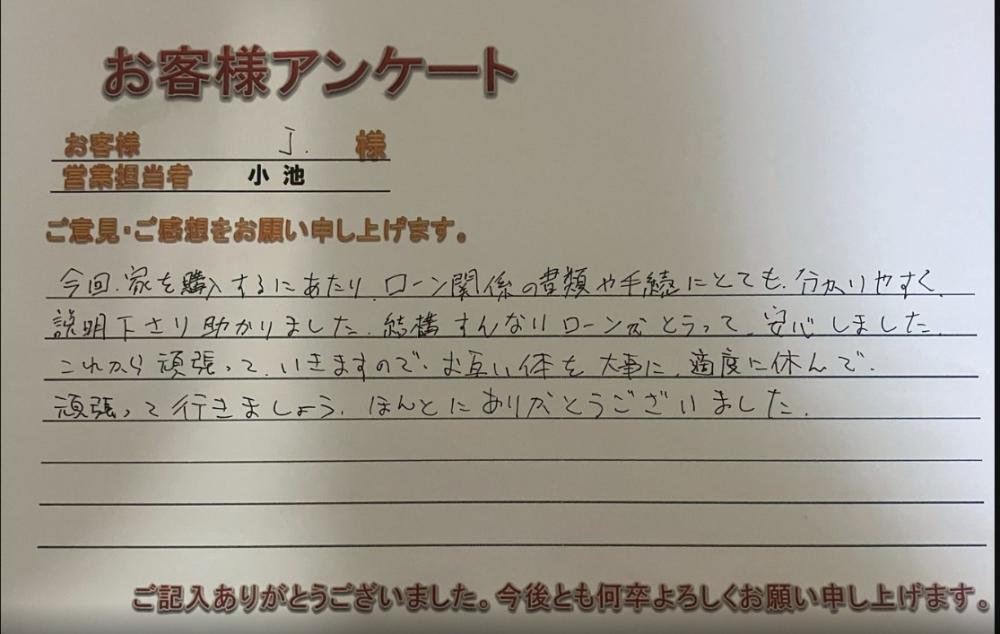 お客様アンケート
お客様 J. 様
営業担当者 小池
ご意見・ご感想をお願い申し上げます。
今回、家を購入するにあたり、ローン関係の書類や手続にとても、分かりやすく、
説明下さり助かりました。結構すんなりローンがとうって、安心しました。
これから頑張って、いきますので、お互い体を大事に、適度に休んで、
頑張って行きましょう。ほんとにありがとうございました。
ご記入ありがとうございました。今後とも何卒よろしくお願い申し上げます。